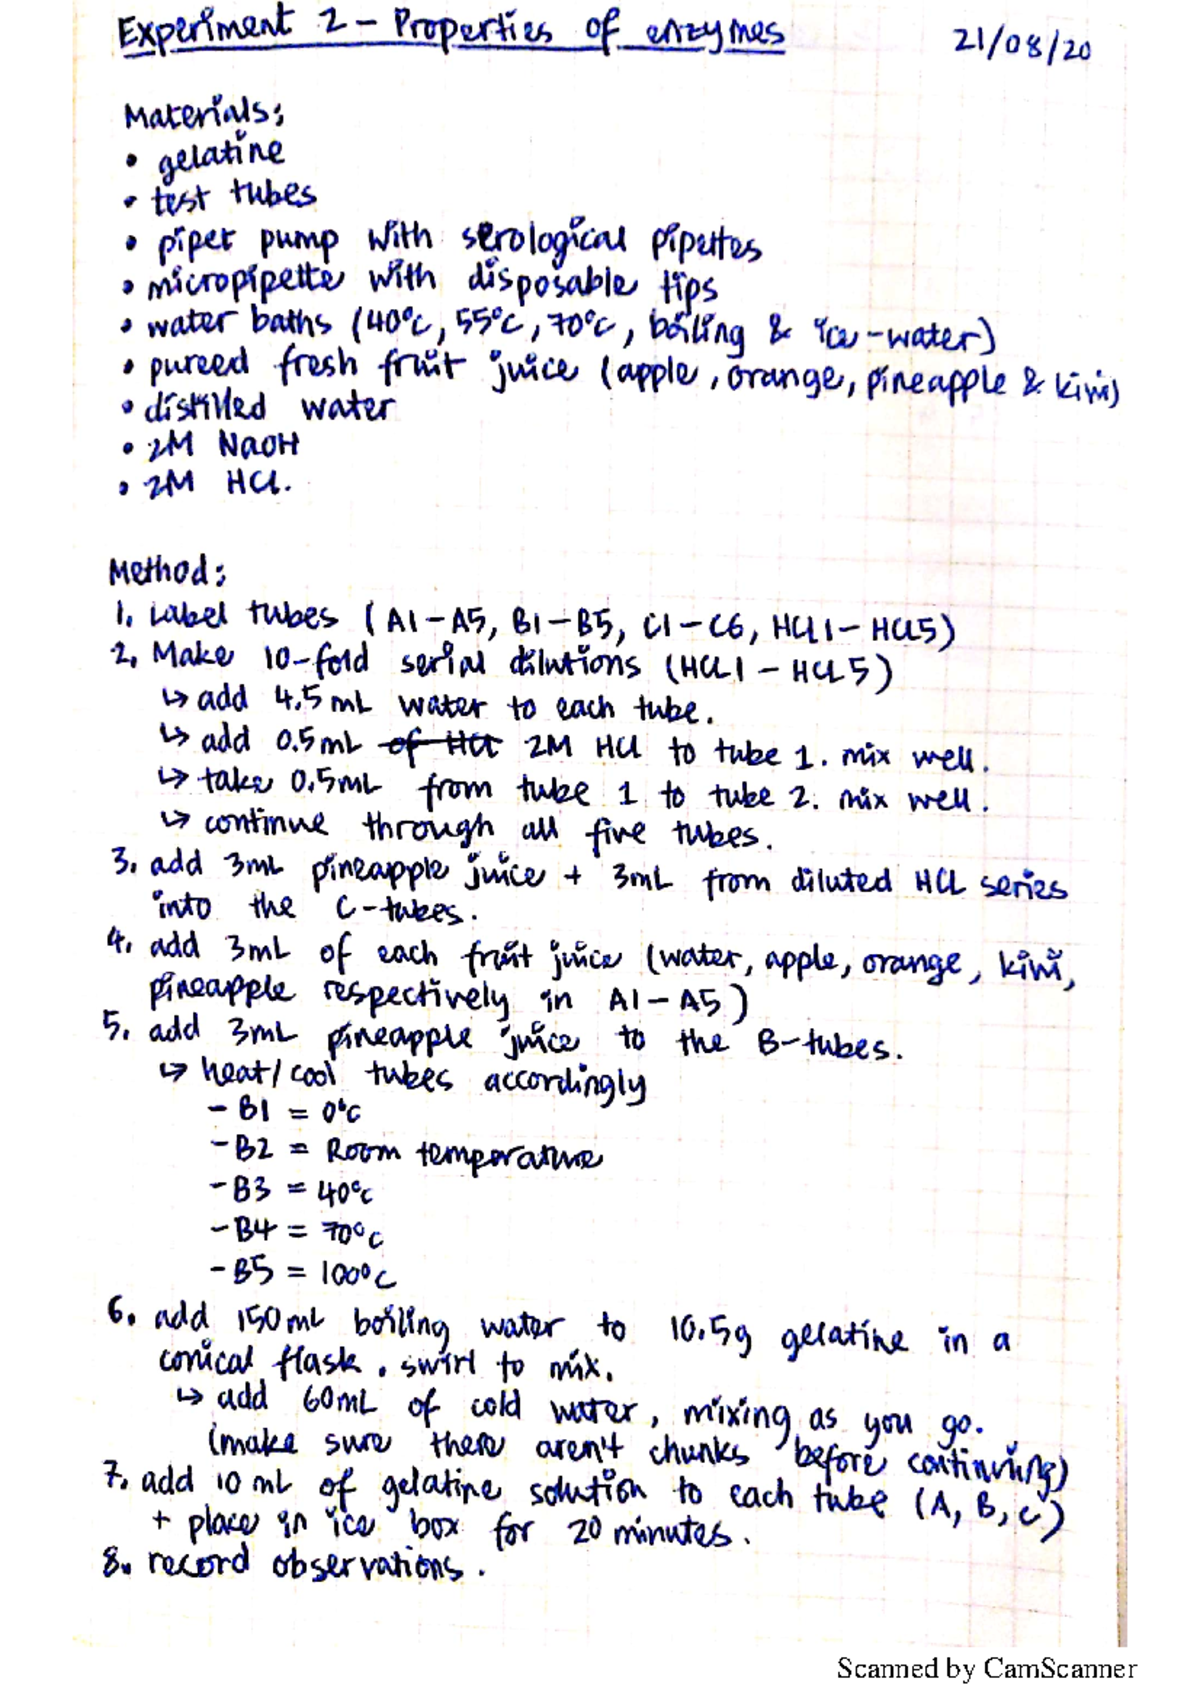 Experiment 2 – Properties of enzymes 21/08/20
Materials:
• gelatine
• test tubes
• pipet pump with serological pipettes
• micropipette with disposable tips
• water baths (40°C, 55°C, 70°C, boiling & ice-water)
• pureed fresh fruit juice (apple, orange, pineapple & kiwi)
• distilled water
• 2M NaOH
• 2M HCl.
Method:
1. Label tubes (A1–A5, B1–B5, C1–C6, HCl1–HCl5)
2. Make 10-fold serial dilutions (HCl1 – HCl5)
↳ add 4.5mL water to each tube.
↳ add 0.5mL of HCl 2M HCl to tube 1. mix well.
↳ take 0.5mL from tube 1 to tube 2. mix well.
↳ continue through all five tubes.
3. add 3mL pineapple juice + 3mL from diluted HCL series
into the C-tubes.
4. add 3mL of each fruit juice (water, apple, orange, kiwi,
pineapple respectively in A1–A5)
5. add 3mL pineapple juice to the B-tubes.
↳ heat/cool tubes accordingly
– B1 = 0°C
– B2 = Room temperature
– B3 = 40°C
– B4 = 70°C
– B5 = 100°C
6. add 150mL boiling water to 10.5g gelatine in a
conical flask. swirl to mix.
↳ add 60mL of cold water, mixing as you go.
(make sure there aren't chunks before continuing)
7. add 10 mL of gelatine solution to each tube (A, B, C)
+ place in ice box for 20 minutes.
8. record observations.
Scanned by CamScanner